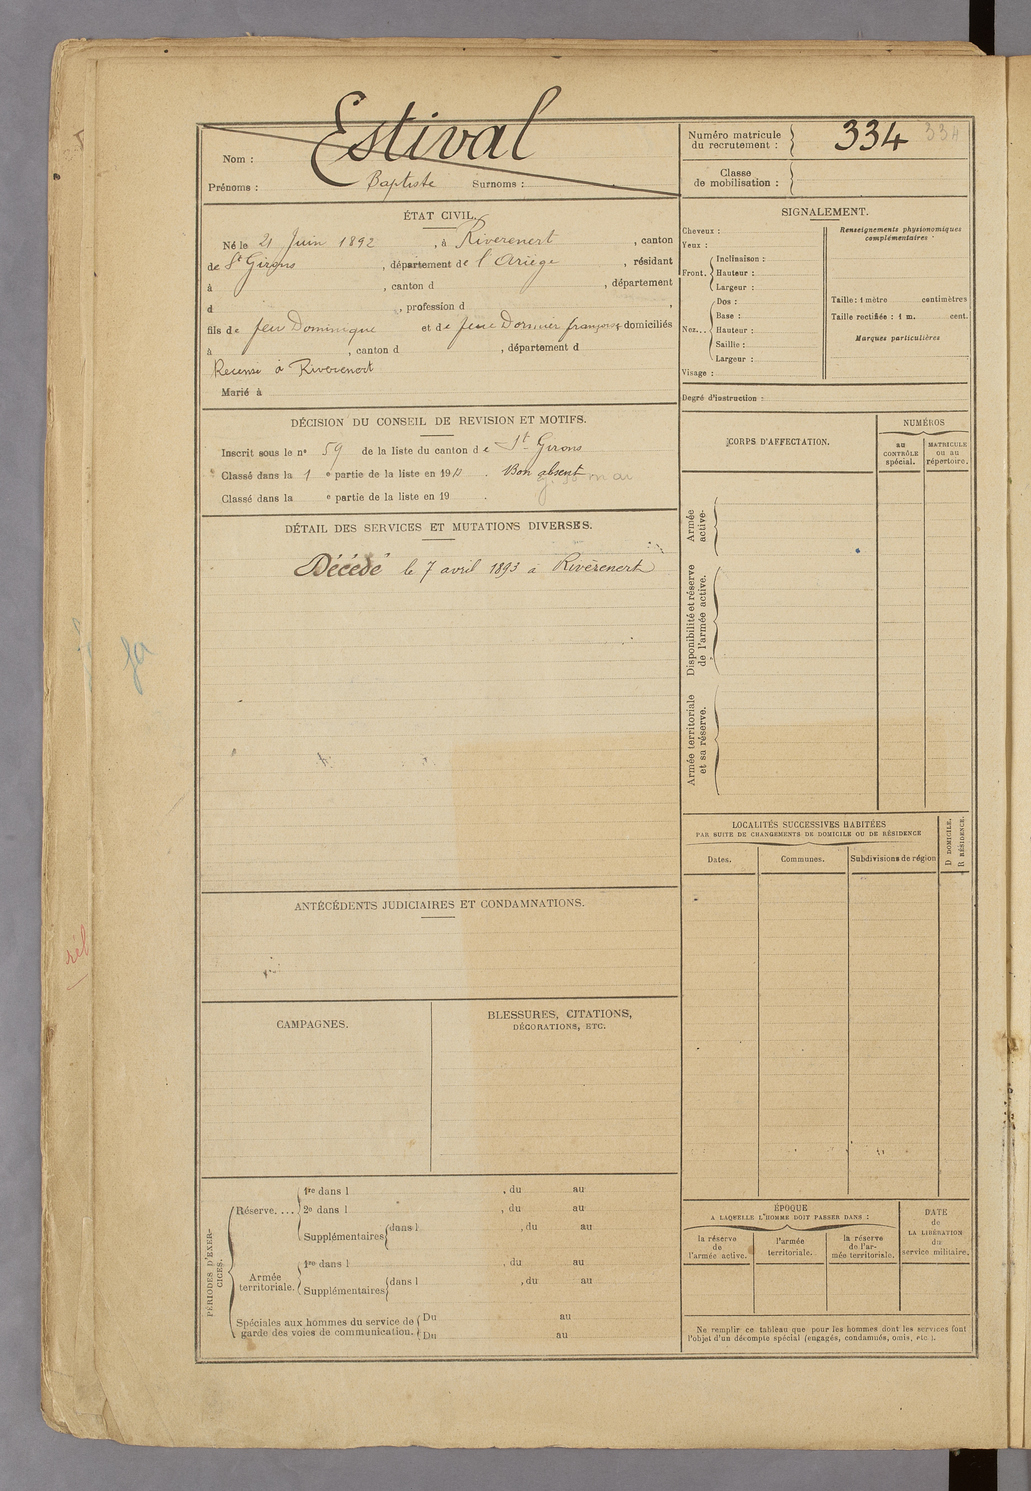 Estival
Nom :
Prénoms : Baptiste Surnoms :
Numéro matricule du recrutement : 334 334
Classe de mobilisation :
ÉTAT CIVIL.
Né le 21 Juin 1892, à Riverenert, canton
de St Girons, département de l'Ariège, résidant
à , canton d , département
d , profession d ,
fils de feu Dominique et de feue Dormier françoise domiciliés
à , canton d , département d
Recensé à Riverenert
Marié à
SIGNALEMENT.
Cheveux :
Yeux :
Front. Inclinaison :
Hauteur :
Largeur :
Nez... Dos :
Base :
Hauteur :
Saillie :
Largeur :
Visage :
Renseignements physionomiques complémentaires :
Taille : 1 mètre centimètres
Taille rectifiée : 1 m. cent.
Marques particulières
Degré d'instruction :
DÉCISION DU CONSEIL DE REVISION ET MOTIFS.
Inscrit sous le no 59 de la liste du canton de St Girons
Classé dans la 1 e partie de la liste en 19 . Bon absent
Classé dans la e partie de la liste en 19 .
CORPS D'AFFECTATION.
NUMÉROS
au CONTRÔLE spécial.
MATRICULE ou au répertoire.
Armée active.
Disponibilité et réserve de l'armée active.
Armée territoriale et sa réserve.
DÉTAIL DES SERVICES ET MUTATIONS DIVERSES.
Décédé le 7 avril 1893 à Riverenert
LOCALITÉS SUCCESSIVES HABITÉES
PAR SUITE DE CHANGEMENTS DE DOMICILE OU DE RÉSIDENCE
Dates.
Communes.
Subdivisions de région
D DOMICILE.
R RÉSIDENCE.
ANTÉCÉDENTS JUDICIAIRES ET CONDAMNATIONS.
CAMPAGNES.
BLESSURES, CITATIONS,
DÉCORATIONS, ETC.
PÉRIODES D'EXERCICES.
Réserve.... 1re dans l , du au
2e dans l , du au
Supplémentaires dans l , du au
Armée territoriale. 1re dans l , du au
Supplémentaires dans l , du au
Spéciales aux hommes du service de Du au
garde des voies de communication. Du au
ÉPOQUE
A LAQUELLE L'HOMME DOIT PASSER DANS :
la réserve de l'armée active.
l'armée territoriale.
la réserve de l'armée territoriale.
DATE de LA LIBÉRATION du service militaire.
Ne remplir ce tableau que pour les hommes dont les services font
l'objet d'un décompte spécial (engagés, condamnés, omis, etc.).